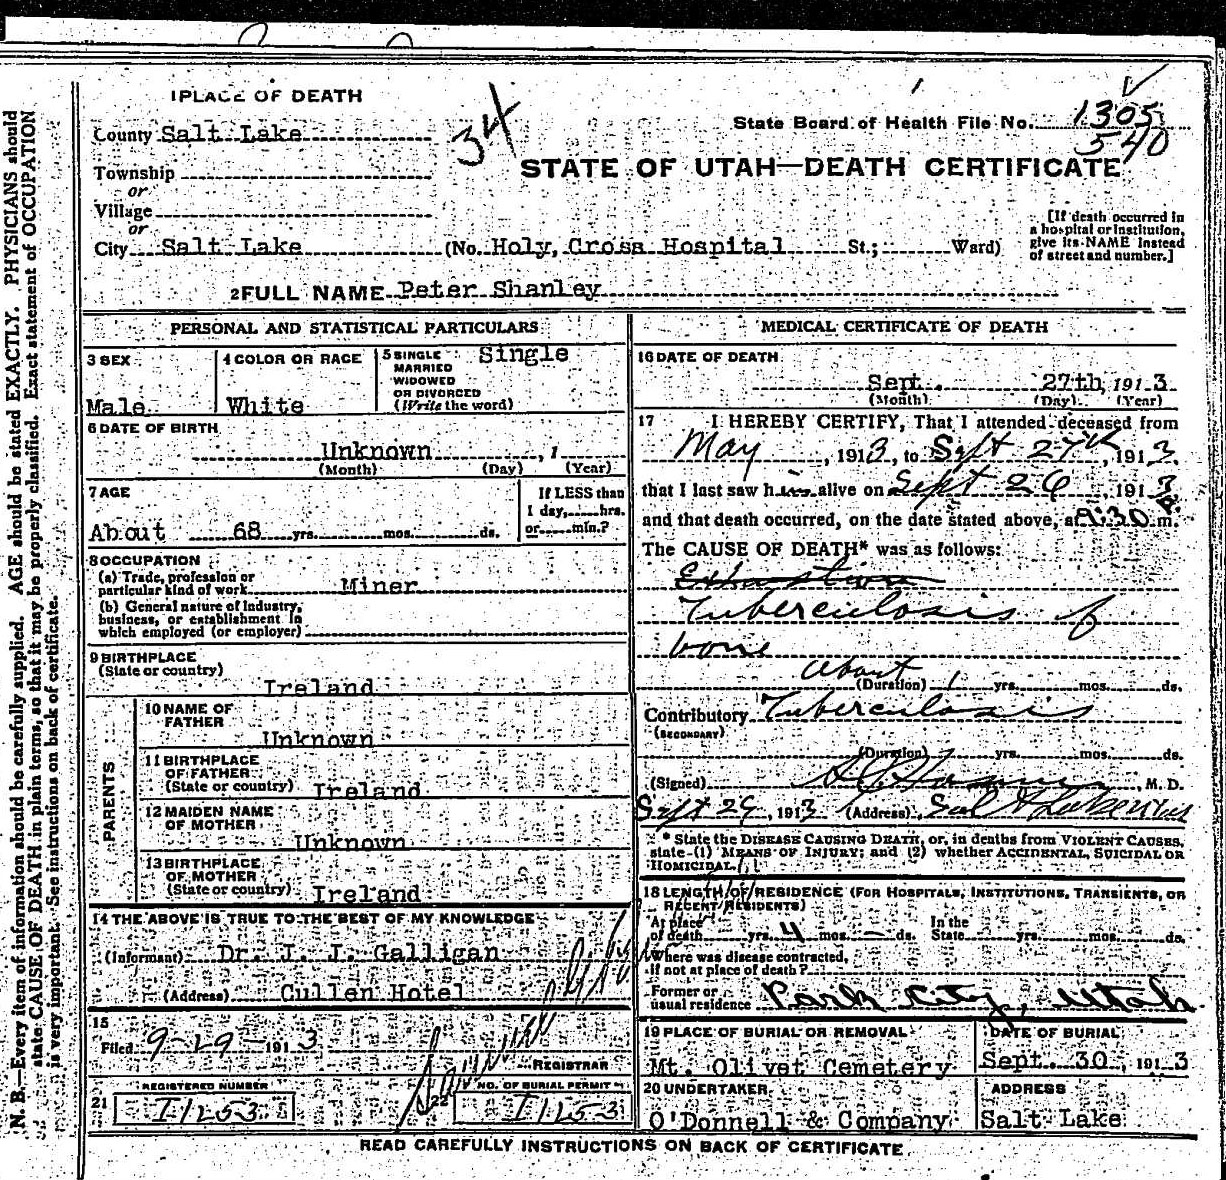 N. B.—Every item of information should be carefully supplied. AGE should be stated EXACTLY. PHYSICIANS should
state CAUSE OF DEATH in plain terms, so that it may be properly classified. Exact statement of OCCUPATION
is very important. See instructions on back of certificate.
1 PLACE OF DEATH
County Salt Lake
34
State Board of Health File No. 1305
540
STATE OF UTAH—DEATH CERTIFICATE
Township
or
Village
or
City Salt Lake (No. Holy, Cross Hospital St.; Ward)
[If death occurred in
a hospital or institution,
give its NAME instead
of street and number.]
2 FULL NAME Peter Shanley
PERSONAL AND STATISTICAL PARTICULARS
3 SEX
Male
4 COLOR OR RACE
White
5 SINGLE
MARRIED
WIDOWED
OR DIVORCED
(Write the word)
Single
6 DATE OF BIRTH
Unknown , 1
(Month) (Day) (Year)
7 AGE
About 68 yrs. mos. ds.
If LESS than
1 day, hrs.
or min.?
8 OCCUPATION
(a) Trade, profession or
particular kind of work Miner
(b) General nature of industry,
business, or establishment in
which employed (or employer)
9 BIRTHPLACE
(State or country)
Ireland
PARENTS
10 NAME OF
FATHER
Unknown
11 BIRTHPLACE
OF FATHER
(State or country) Ireland
12 MAIDEN NAME
OF MOTHER
Unknown
13 BIRTHPLACE
OF MOTHER
(State or country) Ireland
14 THE ABOVE IS TRUE TO THE BEST OF MY KNOWLEDGE
(Informant) Dr. J. J. Galligan
(Address) Cullen Hotel
15
Filed 9-29- 1913
REGISTRAR
REGISTERED NUMBER
21 I1253
NO. OF BURIAL PERMIT
22 I1253
MEDICAL CERTIFICATE OF DEATH
16 DATE OF DEATH
Sept. 27th, 1913
(Month) (Day) (Year)
17 I HEREBY CERTIFY, That I attended deceased from
May , 1913, to Sept 27th, 1913,
that I last saw him alive on Sept 26, 1913
and that death occurred, on the date stated above, at 9:30 P. m.
The CAUSE OF DEATH* was as follows:
Exhaustion
Tuberculosis of
bone
about
(Duration) 1 yrs. mos. ds.
Contributory Tuberculosis
(SECONDARY)
(Duration) yrs. mos. ds.
(Signed) , M. D.
Sept 29, 1913 (Address)
* State the DISEASE CAUSING DEATH, or, in deaths from VIOLENT CAUSES,
state (1) MEANS OF INJURY; and (2) whether ACCIDENTAL, SUICIDAL OR
HOMICIDAL.
18 LENGTH OF RESIDENCE (FOR HOSPITALS, INSTITUTIONS, TRANSIENTS, OR
RECENT RESIDENTS)
At place
of death yrs. 4 mos. – ds.
In the
State yrs. mos. ds.
Where was disease contracted,
if not at place of death?
Former or
usual residence Park City, Utah
19 PLACE OF BURIAL OR REMOVAL
Mt. Olivet Cemetery
DATE OF BURIAL
Sept. 30, 1913
20 UNDERTAKER
O'Donnell & Company
ADDRESS
Salt Lake
READ CAREFULLY INSTRUCTIONS ON BACK OF CERTIFICATE